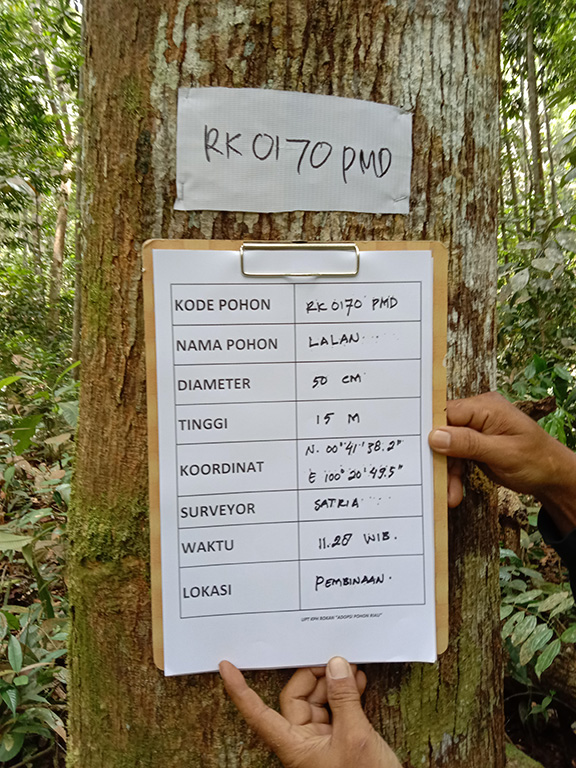 RK 0170 PMD
KODE POHON RK 0170 PMD
NAMA POHON LALAN
DIAMETER 50 CM
TINGGI 15 M
KOORDINAT N. 00° 41' 38.2"
E 100° 20' 49.5"
SURVEYOR SATRIA
WAKTU 11.28 WIB.
LOKASI PEMBINAAN.
UPT KPH ROKAN "ADOPSI POHON RIAU"